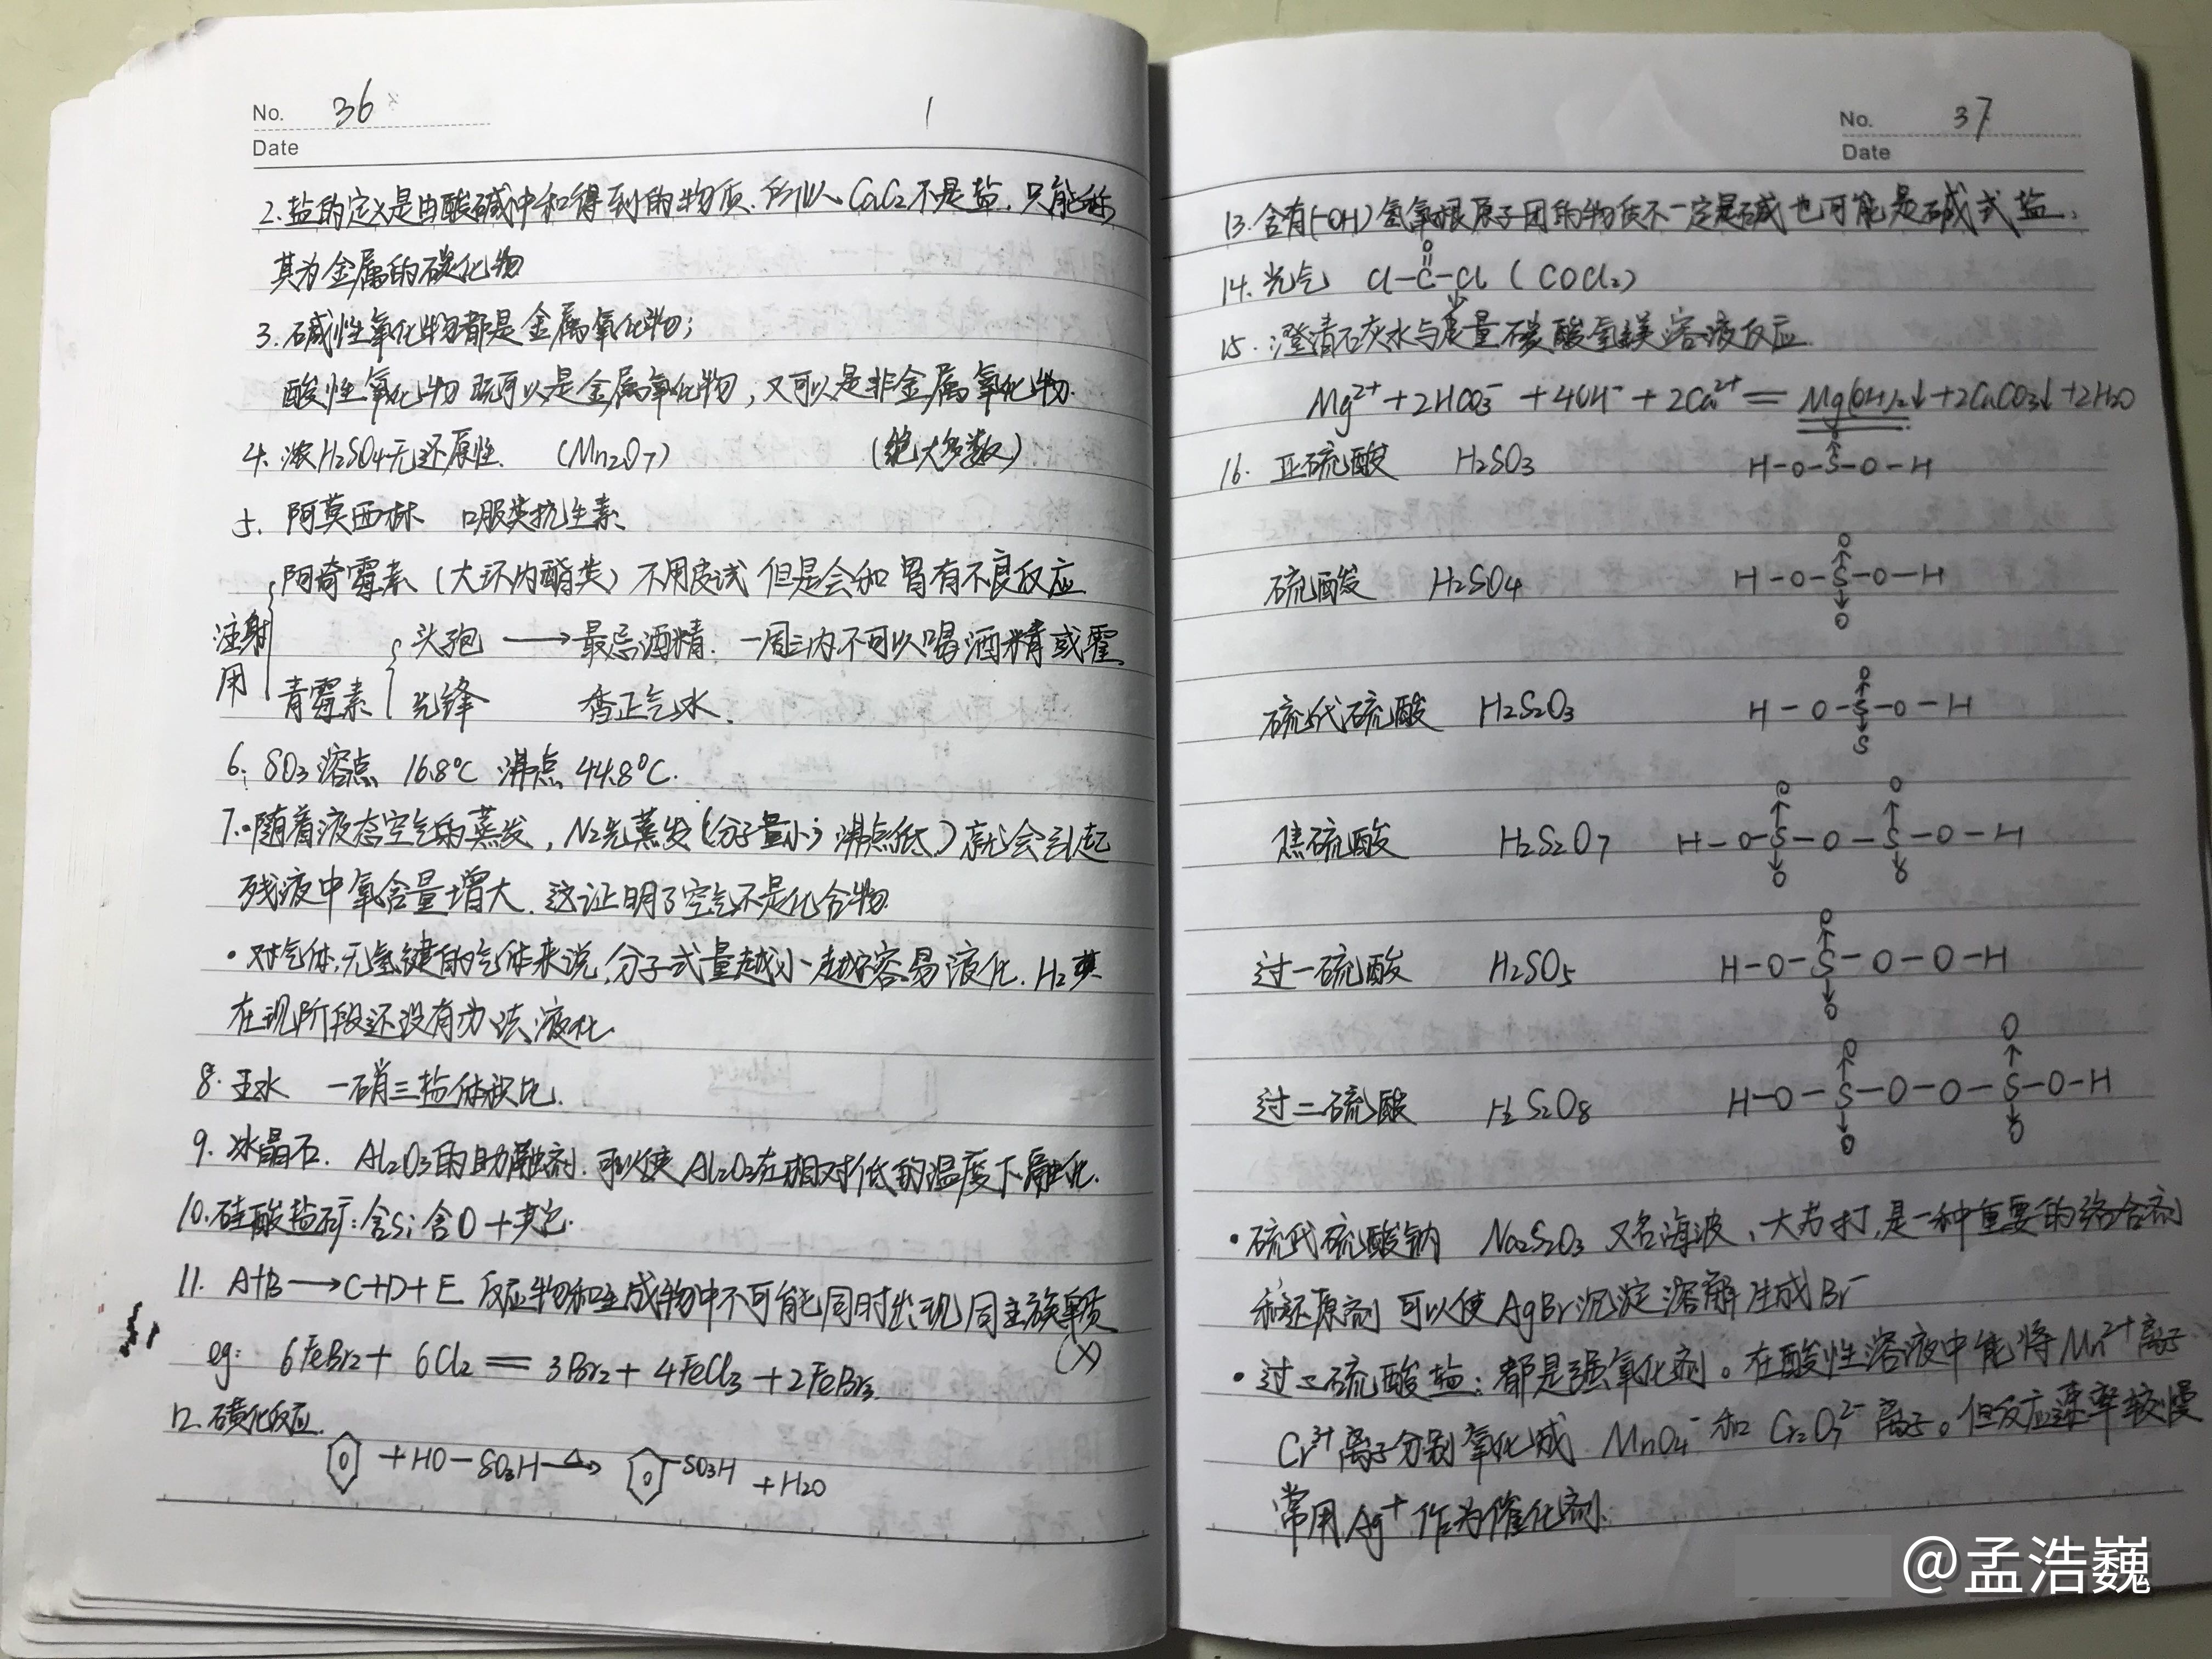 No. 36
1
Date
2.盐的定义是由酸碱中和得到的物质.所以CaC2不是盐.只能称
其为金属的碳化物
3.碱性氧化物都是金属氧化物;
酸性氧化物既可以是金属氧化物,又可以是非金属氧化物.
4.浓H2SO4无还原性. (Mn2O7) (绝大多数)
5.阿莫西林 口服类抗生素
阿奇霉素(大环内酯类)不用皮试 但是会和胃有不良反应
注射用
头孢 → 最忌酒精.一周之内不可以喝酒精或霍
青霉素 先锋 香正气水.
6.SO3溶点 16.8℃ 沸点 44.8℃.
7.·随着液态空气的蒸发,N2先蒸发(分子量小;沸点低)就会引起
残液中氧含量增大.这证明了空气不是化合物.
·对气体,无氢键的气体来说,分子式量越小越容易液化.H2
在现阶段还没有办法液化
8.王水 一硝三盐体积比.
9.冰晶石. Al2O3的助融剂.可以使Al2O3在相对低的温度下融化.
10.硅酸盐矿:含Si含O+其它.
11. A+B→C+D+E 反应物和生成物中不可能同时出现同主族单质
(×)
eg: 6FeBr2+ 6Cl2 = 3Br2+ 4FeCl3 +2FeBr3.
12.磺化反应.
+HO-SO3H △→ SO3H +H2O
No. 37
Date
13.含有(-OH)氢氧根原子团的物质不一定是碱也可能是碱式盐.
O
14.光气 Cl-C-Cl (COCl2)
15.澄清石灰水与足量碳酸氢镁溶液反应
Mg2+ +2HCO3- +4OH- +2Ca2+ = Mg(OH)2↓+2CaCO3↓+2H2O
O
↑
16. 亚硫酸 H2SO3 H-O-S-O-H
O
↑
硫酸 H2SO4 H-O-S-O-H
↓
O
O
↑
硫代硫酸 H2S2O3 H-O-S-O-H
↓
S
O O
↑ ↑
焦硫酸 H2S2O7 H-O-S-O-S-O-H
↓ ↓
O O
O
↑
过一硫酸 H2SO5 H-O-S-O-O-H
↓
O
O O
↑ ↑
过二硫酸 H2S2O8 H-O-S-O-O-S-O-H
↓ ↓
O O
·硫代硫酸钠 Na2S2O3 又名海波、大苏打,是一种重要的络合剂
和还原剂 可以使AgBr沉淀溶解生成Br-
·过二硫酸盐:都是强氧化剂。在酸性溶液中能将Mn2+离子
Cr3+离子分别氧化成 MnO4- 和 Cr2O72- 离子。但反应速率较慢
常用Ag+作为催化剂.
@孟浩巍